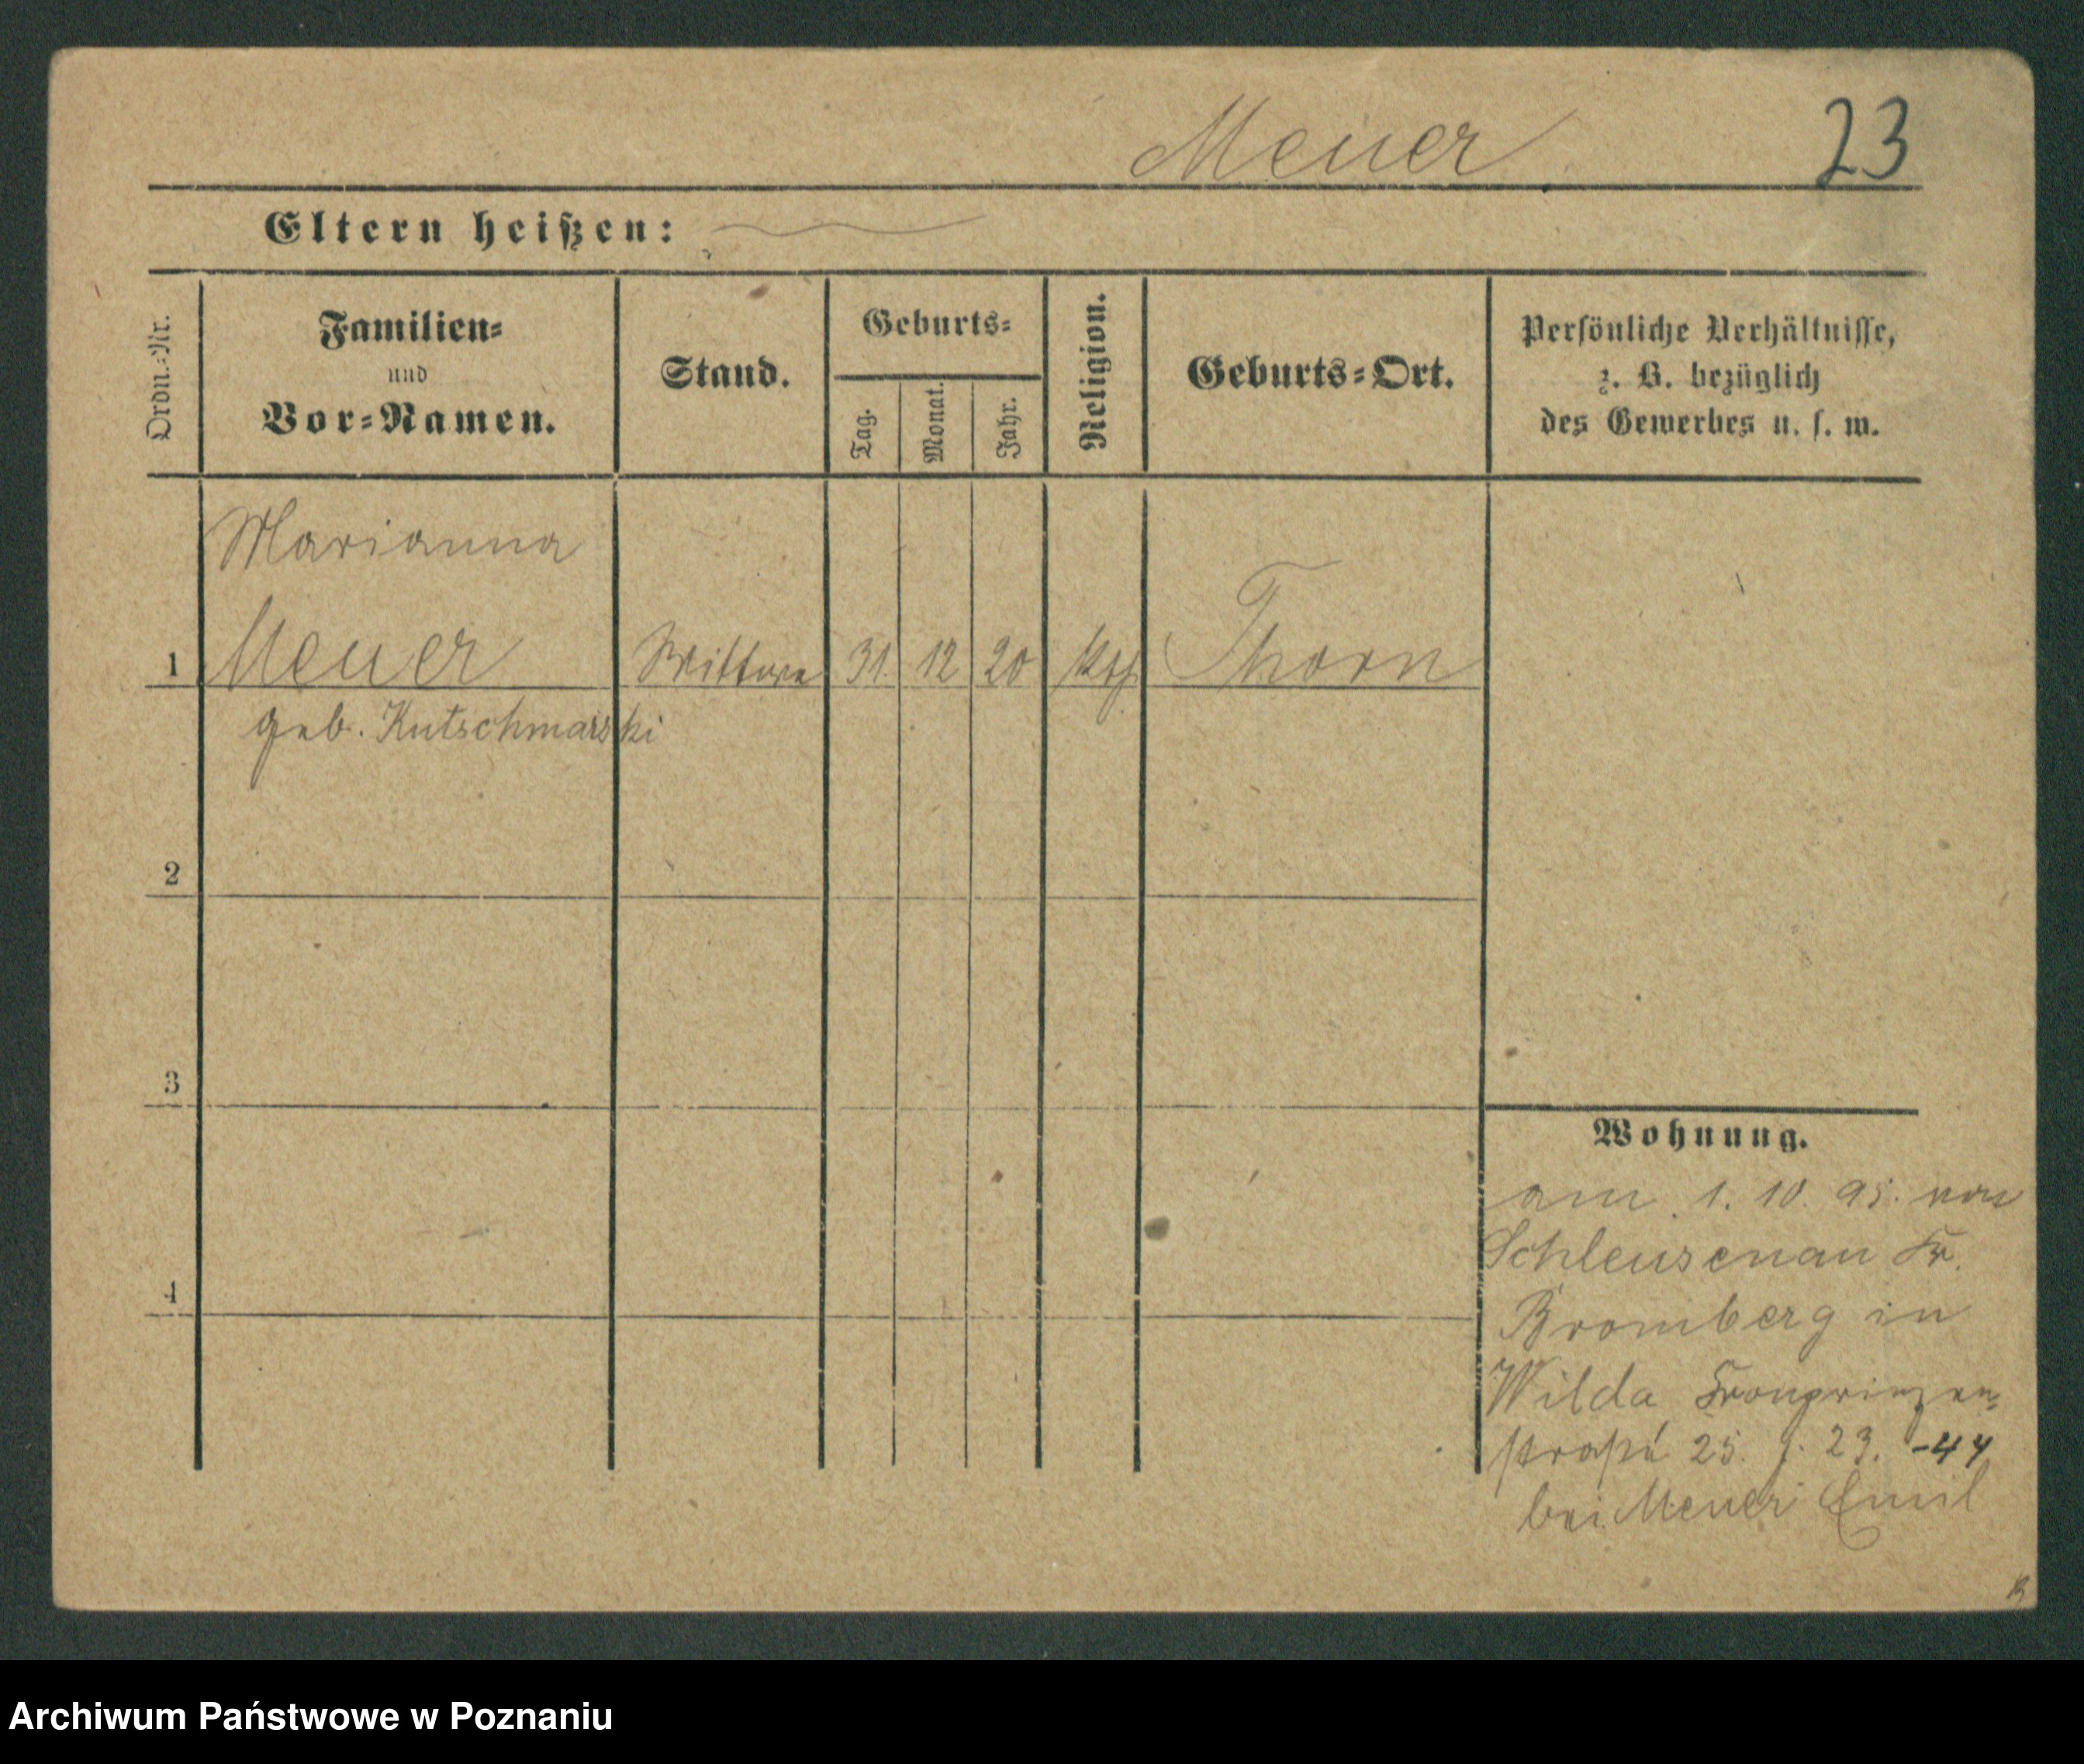 Meuer 23
Eltern heißen:
Ordn.-Nr.
Familien-
und
Vor-Namen.
Stand.
Geburts-
Tag.
Monat.
Jahr.
Religion.
Geburts-Ort.
Persönliche Verhältnisse,
z. B. bezüglich
des Gewerbes u. s. w.
Marianna
1 Meuer Wittwe 31. 12 20 kth Thorn
geb. Kutschmarski
2
3
4
Wohnung.
am 1. 10. 95. von
Schleusenau Kr.
Bromberg in
Wilda Kronprinzen-
straße 25. j. 23. -44
bei Meuer Emil
Archiwum Państwowe w Poznaniu